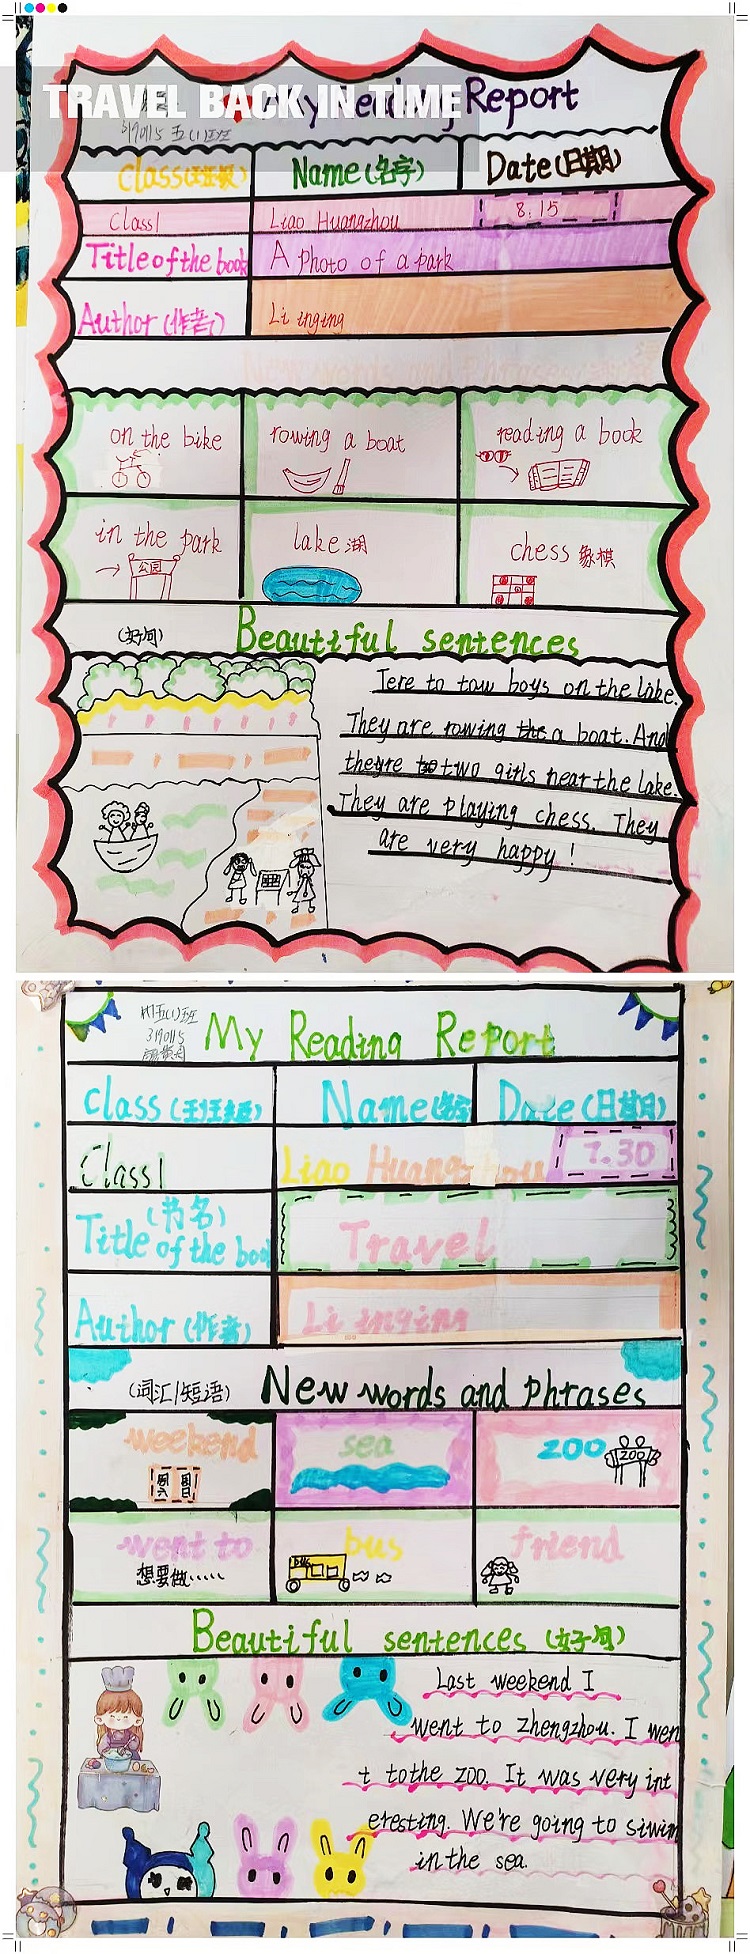 TRAVEL BACK IN TIME
My Reading Report
3190115 五(1)班
Class(班级) Name(名字) Date(日期)
Class1 Liao Huangzhou 8.15
Title of the book A photo of a park
Author(作者) Li inging
on the bike rowing a boat reading a book
in the park lake 湖 chess 象棋
公园
(好句) Beautiful sentences
Tere to tow boys on the lake.
They are rowing the a boat. And
theyre to two girls near the lake.
They are playing chess. They
are very happy!
五(1)班
3190115
My Reading Report
Class(班级) Name(名字) Date(日期)
Class1 Liao Huang hou 7.30
(书名)
Title of the book Travel
Author(作者) Li inging
(词汇/短语) New words and phrases
weekend sea zoo
ZOO
周六 周日
went to bus friend
想要做······ BUS
Beautiful sentences (好句)
Last weekend I
went to zhengzhou. I wen
t tothe zoo. It was very int
eresting. We're going to siwim
in the sea.